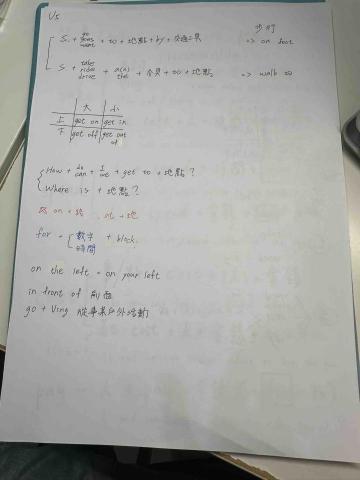 U5
步行
S. + go goes went + to + 地點 + by + 交通工具 => on foot
S + take rides drive + a(n) the + 交具 + to + 地點 => walk to
大 小
上 get on get in
下 get off get out of
How + do can + I we + get to + 地點?
Where is + 地點?
on + 路, at + 地
for + 數字 時間 + block.
on the left = on your left
in front of 前面
go + Ving 從事某戶外活動